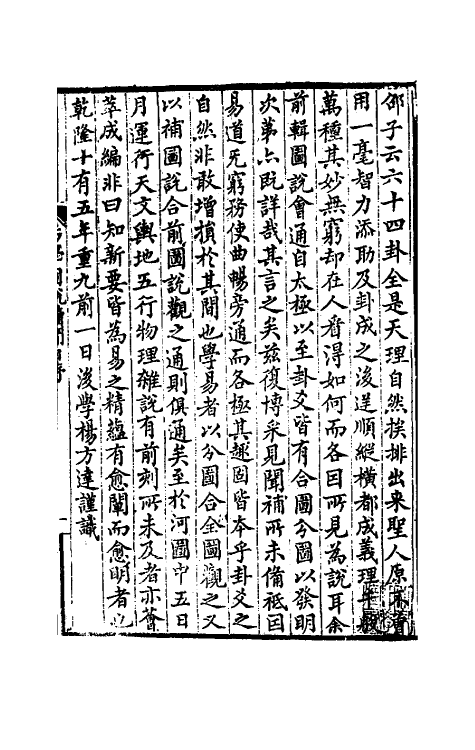 邵子云六十四卦全是天理自然挨排出来聖人原不曾
用一毫智力添助及卦成之後逆順縱橫都成義理千般
萬種其妙無窮却在人看得如何而各因所見為說耳余
前輯圖說會通自太極以至卦爻皆有合圖分圖以發明
次第亦既詳哉其言之矣茲復博采見聞補所未備袛因
易道无窮務使曲暢旁通而各極其趣固皆本乎卦爻之
自然非敢增損於其間也學易者以分圖合全圖觀之又
以補圖說合前圖說觀之通則俱通矣至於河圖中五日
月運行天文輿地五行物理雜說有前刻所未及者亦薈
萃成編非曰知新要皆為易之精蘊有愈闡而愈明者也
乾隆十有五年重九前一日後學楊方達謹識